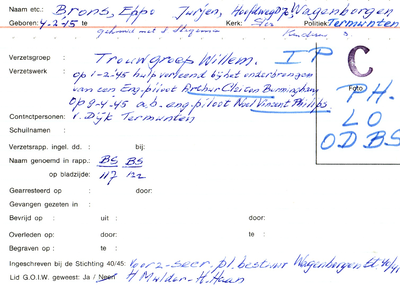 Naam etc.: Brons, Eppo Jurjen, Hoofdweg Wagenborgen
Geboren: 4-2-45 te Kerk: Politiek Termunten
gehuwd met
Verzetsgroep : Trouwgroep Willem. I P
Verzetswerk : op 1-2-45 hulp verleend bij het onderbrengen
van een Eng. piloot Arthur Birmingham
op 9-4-45 a.b. eng. piloot Noel Vincent Phillips
C
Foto
P.H.
L O
O D B S
Contractpersonen: v. Dijk Termunten
Schuilnaam :
Verzetsrapp. ingel. dd. : bij:
Naam genoemd in rapp.: BS BS
op bladzijde: 117 122
Gearresteerd op : door:
Gevangen gezeten in :
Bevrijd op : uit : door:
Overleden op: door: te :
Begraven op : te :
Ingeschreven bij de Stichting 40/45: Voorz-secr. pl. bestuur Wagenborgen St 40/45
Lid G.O.I.W. geweest: Ja / Neen H Mulder - H. Haan